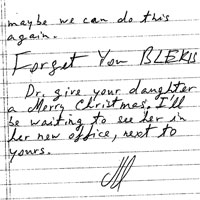 maybe we can do this
again.
Forget You BLEKIS
Dr. give your daughter
a Merry Christmas. I'll
be waiting to see her in
her new office, next to
yours.